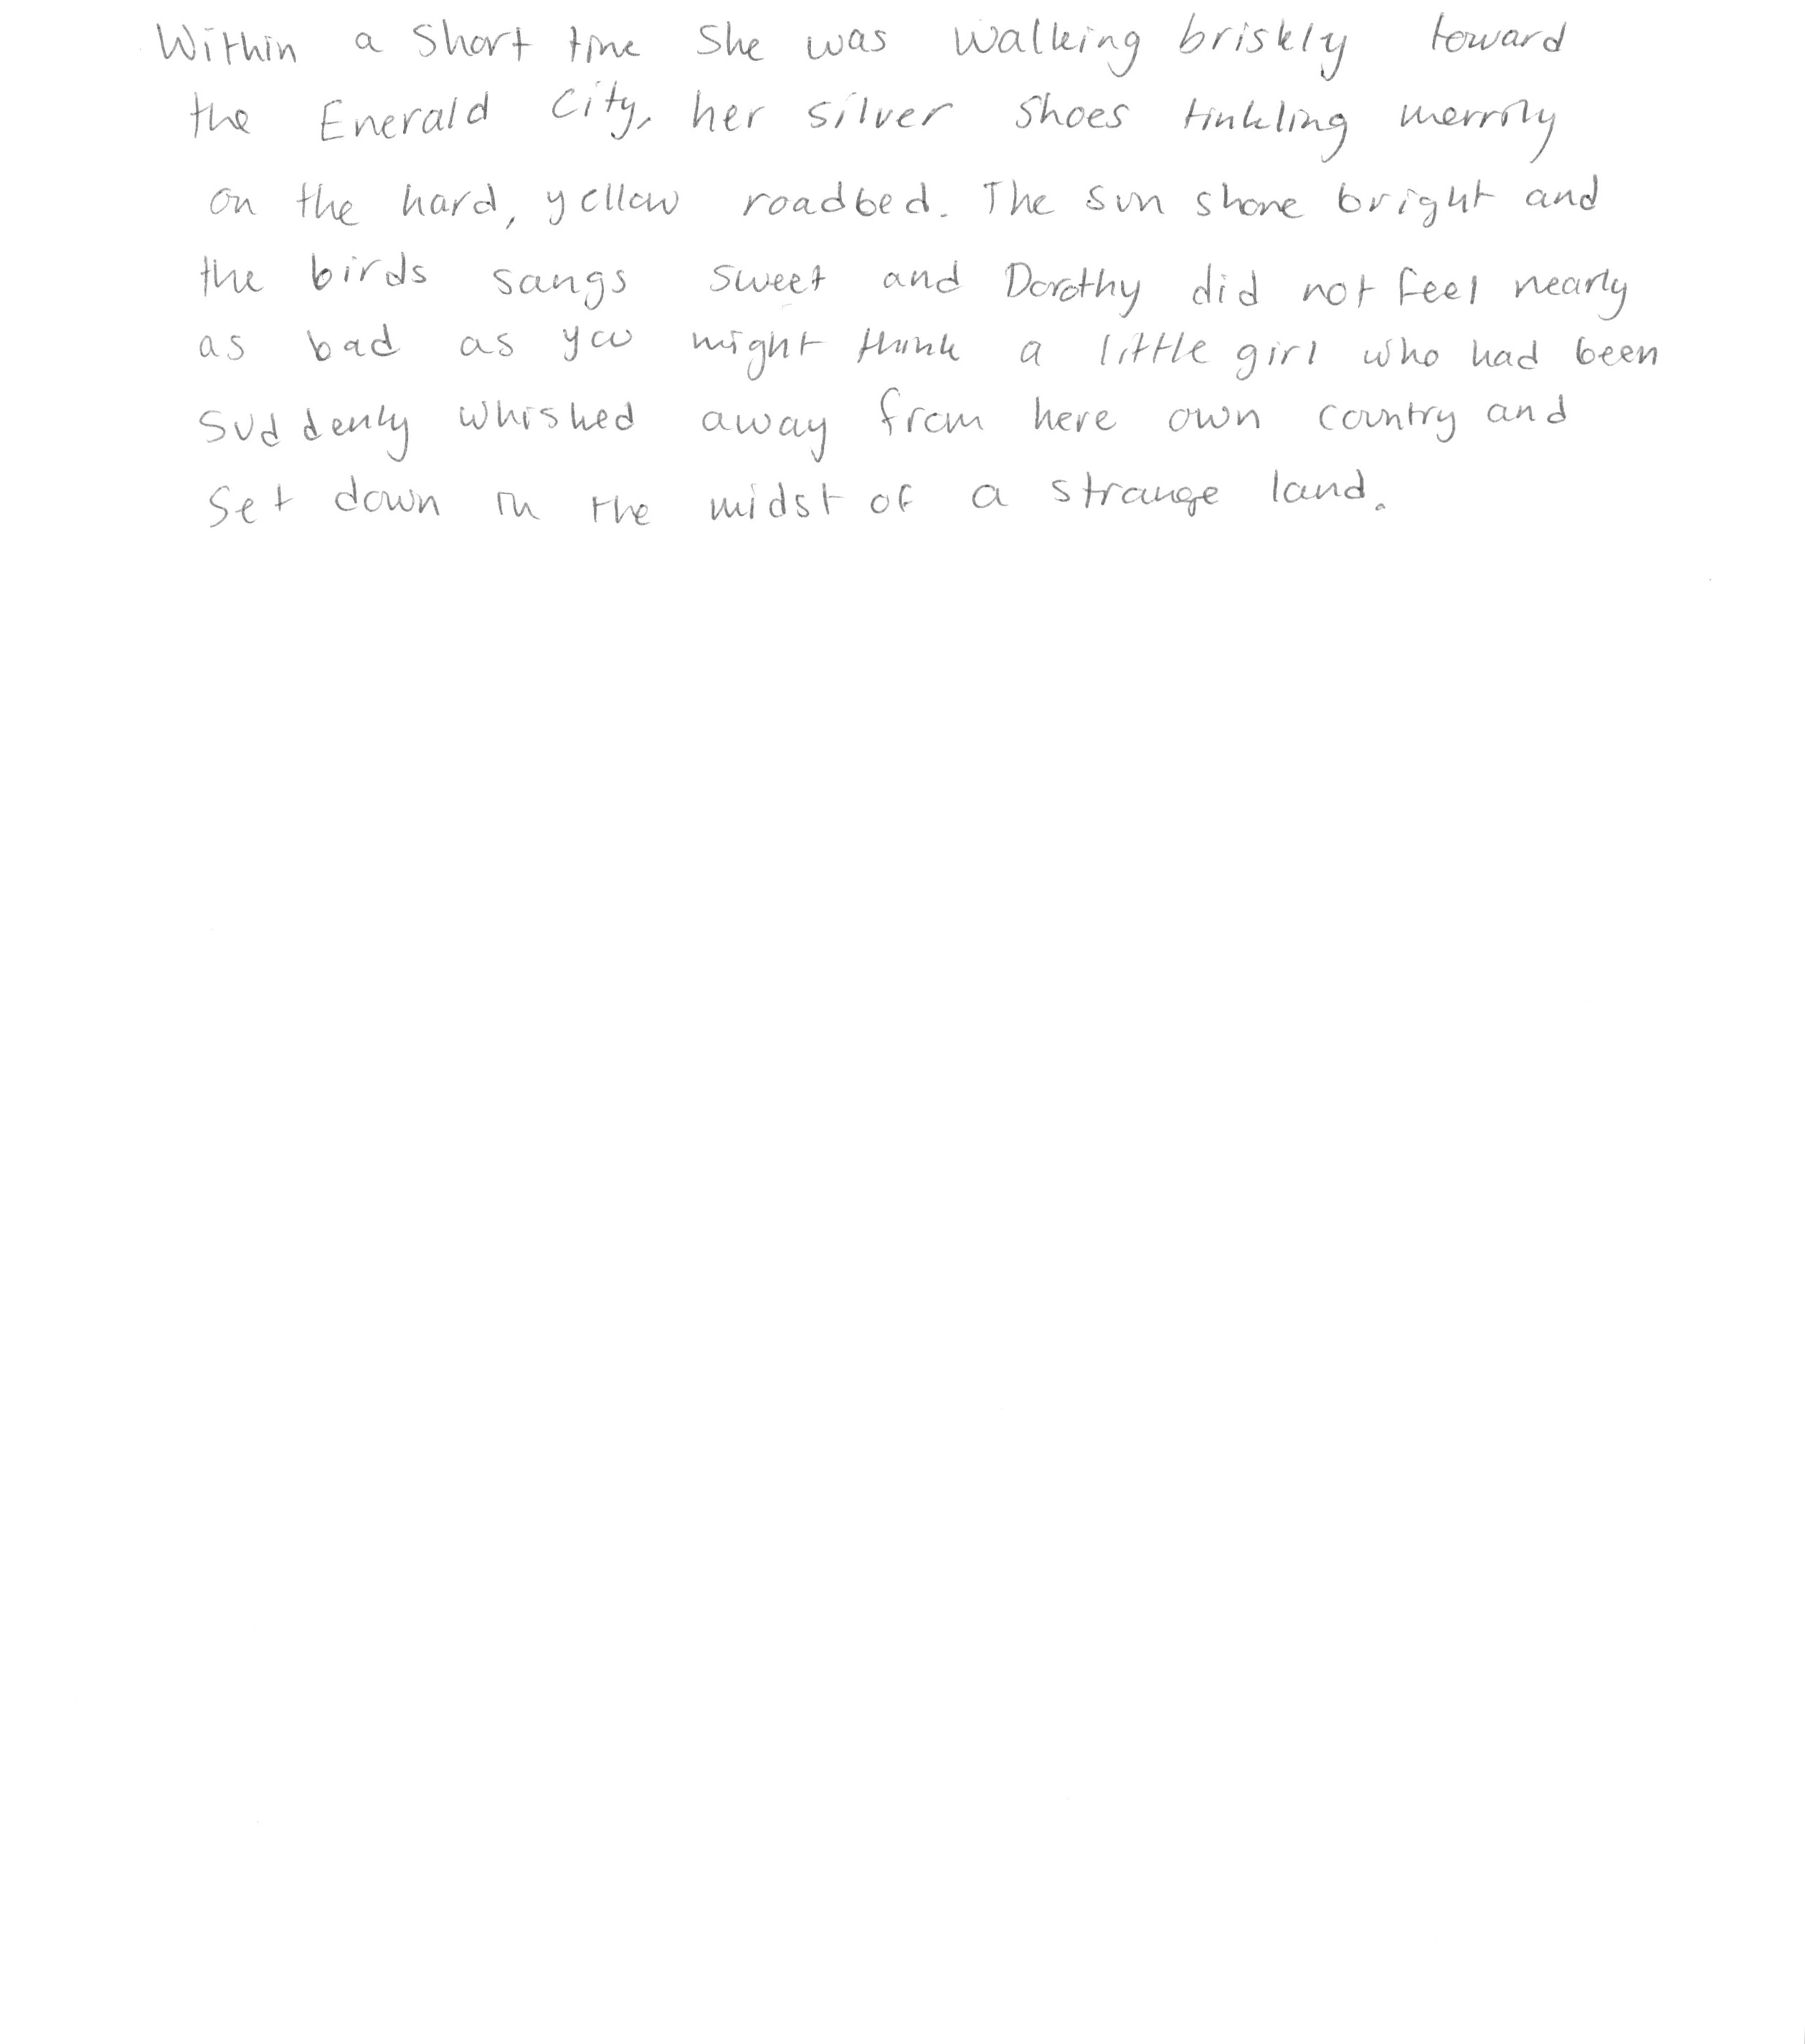 Within a short time she was walking briskly toward
the Enerald City, her silver shoes tinkling merrily
on the hard, yellow roadbed. The sun shone bright and
the birds sangs sweet and Dorothy did not feel nearly
as bad as you might think a little girl who had been
suddenly whished away from here own country and
set down in the midst of a strange land.